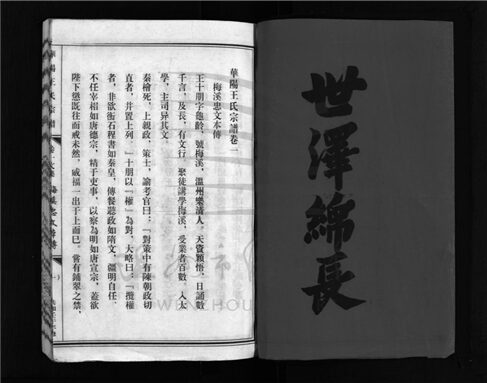 世澤綿長
華陽王氏宗譜卷一
梅溪忠文本傳
王十朋字龜齡，號梅溪，溫州樂清人。天資穎悟，日誦數
千言，及長，有文行，聚徒講學梅溪，受業者百數，入太
學，主司异其文。
秦檜死，上親政，策士，諭考官曰：「對策中有陳朝政切
直者，并置上列。」十朋以「權」為對，大略曰：「攬權
者，非欲衡石程書如秦皇，傳餐聽政如隋文，彊明自任、
不任宰相如唐德宗，精于吏事、以察為明如唐宣宗，蓋欲
陛下懲既往而戒未然，威福一出于上而已。嘗有鋪翠之禁，
華陽王氏宗譜